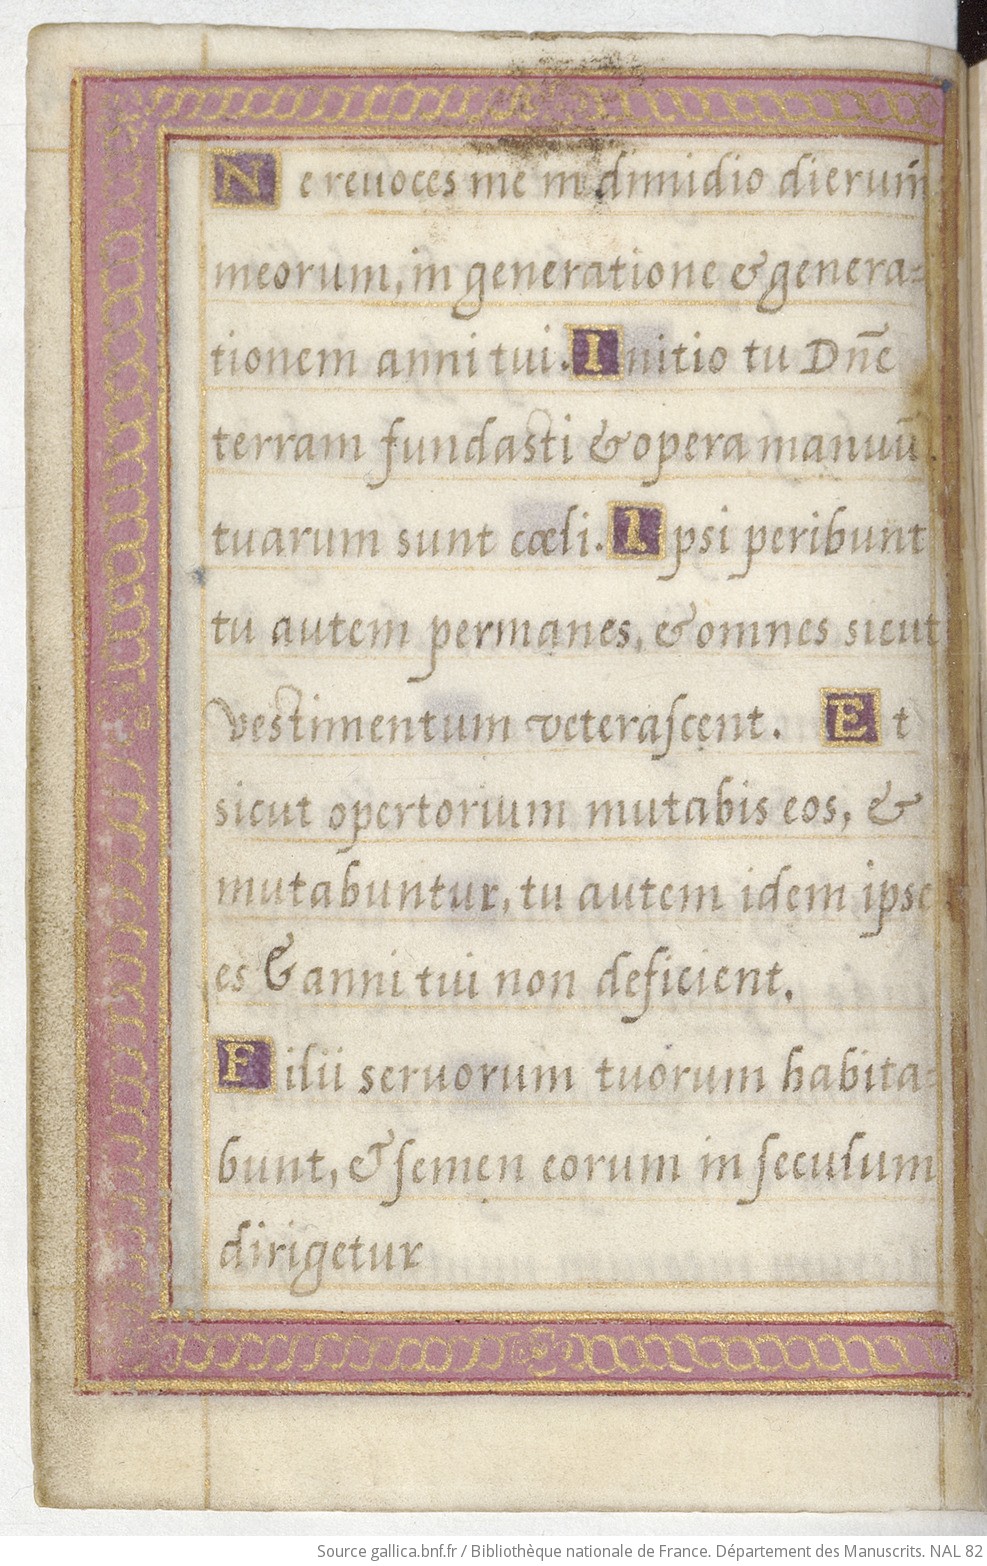 Ne reuoces me in dimidio dierum̄
meorum, in generatione & genera=
tionem anni tui. Initio tu Dn̄e
terram fundasti & opera manuū.
tuarum sunt cœli. Ipsi peribunt
tu autem permanes, & omnes sicut
vestimentum veteraſcent. Et
sicut opertorium mutabis eos, &
mutabuntur, tu autem idem ipse
es & anni tui non deficient.
Filii seruorum tuorum habita=
bunt, & ſemen eorum in ſeculum
dirigetur
Source gallica.bnf.fr / Bibliothèque nationale de France. Département des Manuscrits. NAL 82